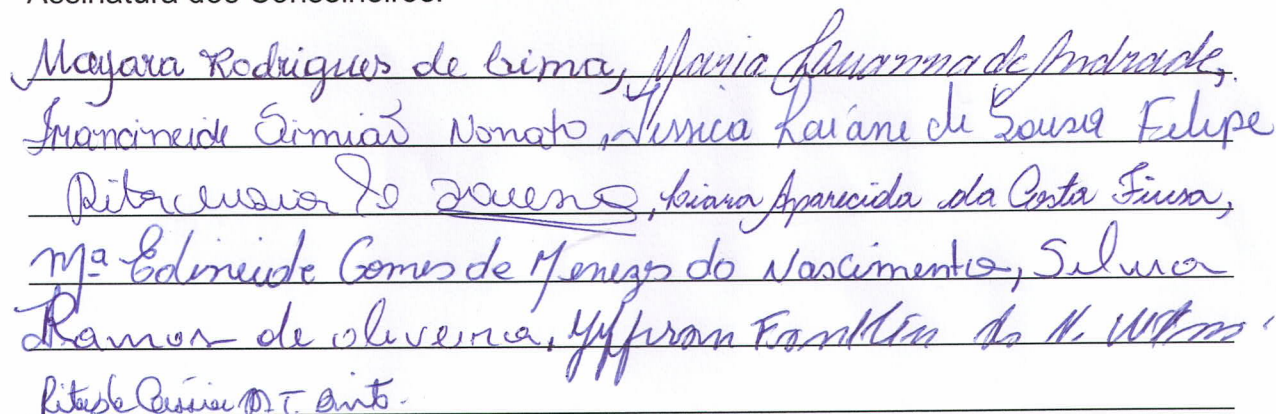 Assinatura dos Conselheiros:
Mayara Rodrigues de Lima, Maria Lauanna de Andrade,
Francineide Simião Nonato, Jéssica Laiane de Sousa Felipe
Rita, Liana Aparecida da Costa Fiusa,
Mª Edineide Gomes de Menezes do Nascimento, Silvia
Ramos de oliveira, do N.
Rita de Cássia